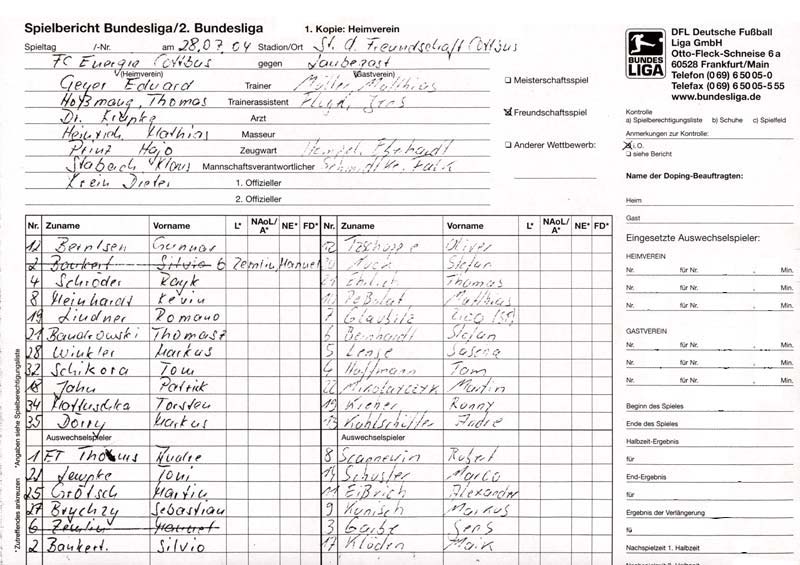 Spielbericht Bundesliga/2. Bundesliga 1. Kopie: Heimverein
Spieltag /-Nr. am 28.07.04 Stadion/Ort St. d. Freundschaft Cottbus
FC Energie Cottbus gegen Laubegast
(Heimverein) (Gastverein)
Geyer Eduard Trainer Müller, Matthias
Hoßmang, Thomas Trainerassistent Jens
Dr. Arzt
Heinrich Mathias Masseur
Prinz Hajo Zeugwart Eberhardt
Stabach, Klaus Mannschaftsverantwortlicher Schmidtke, Falk
Krein Dieter 1. Offizieller
2. Offizieller
Meisterschaftsspiel
Freundschaftsspiel
Anderer Wettbewerb:
BUNDES LIGA
DFL Deutsche Fußball
Liga GmbH
Otto-Fleck-Schneise 6 a
60528 Frankfurt/Main
Telefon (0 69) 6 50 05-0
Telefax (0 69) 6 50 05-5 55
www.bundesliga.de
Kontrolle
a) Spielberechtigungsliste b) Schuhe c) Spielfeld
Anmerkungen zur Kontrolle:
i.O.
siehe Bericht
Name der Doping-Beauftragten:
Heim
Gast
Nr. Zuname Vorname L* NAoL/A* NE* FD* Nr. Zuname Vorname L* NAoL/A* NE* FD*
12 Berntsen Gunnar 12 Tzschoppe Oliver
2 Bankert Silvio 6 Zemlin, Manuel 20 Muck Stefan
4 Schröder Rayk 21 Ehrlich Thomas
8 Meinhardt Kevin Peßolat Matthias
19 Lindner Romano 7 Glaubitz Rico
21 Bandrowski Thomasz 6 Bernhardt Stefan
28 Winkler Markus 5 Lenge Sascha
32 Schikora Toni 4 Hoffmann Tom
18 Jahn Patrick 22 Mikolarczyk Martin
34 Mattuschka Torsten 19 Kiener Ronny
35 Dörry Markus 13 Kohlschütter Andre
Auswechselspieler Auswechselspieler
1 ET Thomas Andre 8 Scannewin Robert
23 Lempke Toni 14 Schuster Marco
25 Grötsch Martin 11 Eißrich Alexander
27 Brychzy Sebastian 9 Kanisch Markus
6 Zemlin Manuel 3 Garbe Jens
2 Bankert. Silvio 17 Klöden Maik
*Angaben siehe Spielberechtigungsliste
*Zutreffendes ankreuzen
Eingesetzte Auswechselspieler:
HEIMVEREIN
Nr. für Nr. , Min.
Nr. für Nr. , Min.
Nr. für Nr. , Min.
GASTVEREIN
Nr. für Nr. , Min.
Nr. für Nr. , Min.
Nr. für Nr. , Min.
Beginn des Spieles
Ende des Spieles
Halbzeit-Ergebnis
für
End-Ergebnis
für
Ergebnis der Verlängerung
für
Nachspielzeit 1. Halbzeit